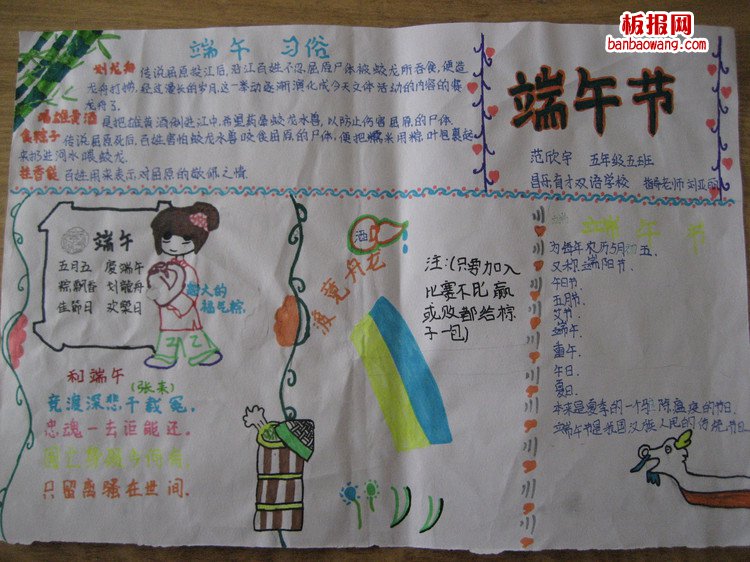 板报网
banbaowang.com
端午 习俗
划龙舟 传说屈原投江后,沿江百姓不忍屈原尸体被蛟龙所吞食,便造
龙舟打捞,经过漫长的岁月,这一举动逐渐演化成今天文体活动的内容的赛
龙舟了.
喝雄黄酒 是把雄黄酒倒进江中,希望药晕蛟龙水兽,以防止伤害屈原的尸体.
食粽子 传说屈原死后,百姓害怕蛟龙水兽咬食屈原的尸体,便把糯米用粽叶包裹起
来扔进河水喂蛟龙.
挂香袋 百姓用来表示对屈原的敬仰之情.
端午节
范欣宇 五年级五班
昌乐育才双语学校 指导老师 刘亚
端午
五月五 庆端午
粽飘香 划龙舟
佳节日 欢乐日
超大的
福气粽.
和端午
(张耒)
竞渡深悲千载冤,
忠魂一去讵能还.
国亡身殒今何有,
只留离骚在世间.
酒
龙舟竞渡
注:(只要加入
比赛不比赢
或败都给粽
子一包)
端午节
为每年农历5月初五.
又称端阳节.
午日节.
五月节.
艾节.
端午.
重午.
午日.
夏日.
本来是夏季的一个驱除瘟疫的节日.
端午节是我国汉族人民的传统节日.